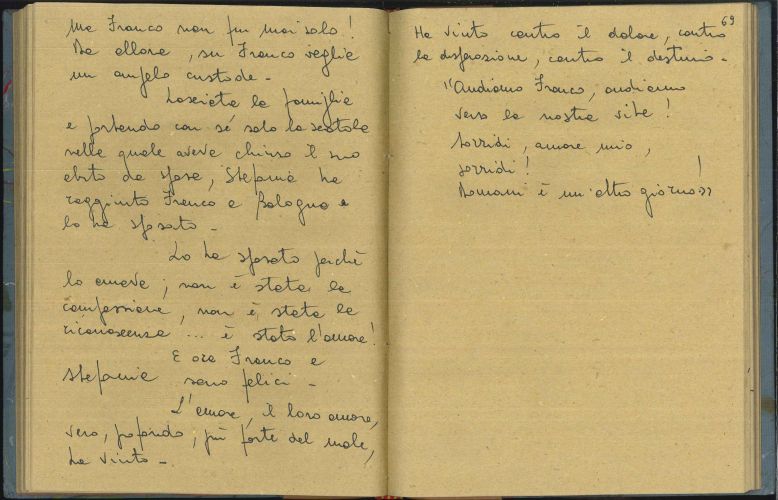 Ma Franco non fu mai solo!
Da allora, su Franco veglia
un angelo custode -
Lasciata la famiglia
e portando con sé solo la scatola
nella quale aveva chiuso il suo
abito da sposa, Stefania ha
raggiunto Franco a Bologna e
lo ha sposato -
Lo ha sposato perchè
lo amava, non è stata la
compassione, non è stata la
riconoscenza ... è stato l'amore!
E ora Franco e
Stefania sono felici -
L'amore, il loro amore,
vero, profondo, più forte del male,
ha vinto -
69
Ha vinto contro il dolore, contro
la disperazione, contro il destino -
"Andiamo Franco, andiamo
verso la nostra vita!
Sorridi, amore mio,
sorridi!
Domani è un'altro giorno!"